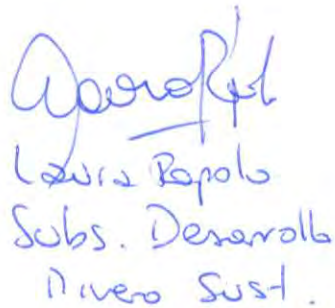 Laura Rapolo
Subs. Desarrollo
Minero Sust.